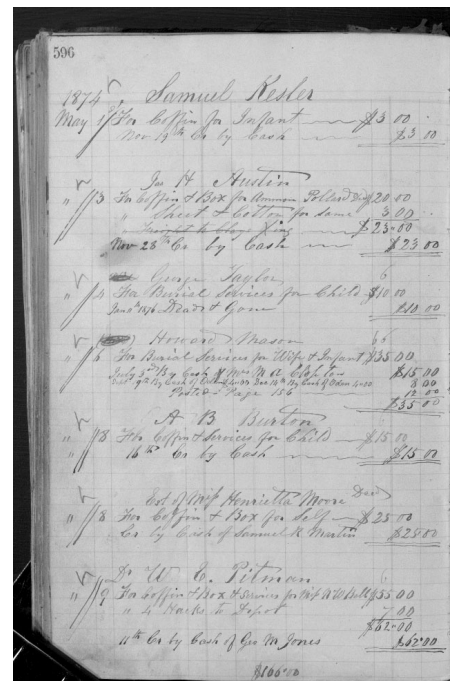 596
1874 Samuel Kesler
May 1 For Coffin for Infant $3 00
Nov 19th Cr by Cash $3 00
Jas H Austin
" 3 For Coffin & Box for Pollard Dec $20 00
" Sheet & Cotton for same 3 00
$23 00
Nov 23 Cr by Cash $23 00
George Taylor 6
" 4 For Burial Services for Child $10 00
Dead & Gone $10 00
Howard Mason 66
" 6 For Burial Services for Wife & Infant $35 00
July 3rd By Cash of Mrs M A $15 00
Sept 9th By Cash of 4.00 Dec 14th By Cash 4.00 8 00
Posted Page 156 12 00
$35 00
A B Burton
" 8 For Coffin & Services for Child $15 00
" 16th Cr by Cash $15 00
Est of Miss Henrietta Moore Decd
" 8 For Coffin & Box for Self $25 00
Cr by Cash of Samuel K Martin $25 00
Dr W E Pitman 6
" 9 For Coffin & Box & Services for $55 00
" 4 Hacks to Depot 7 00
$62 00
11th Cr by Cash of Geo M Jones $62 00
$166 00